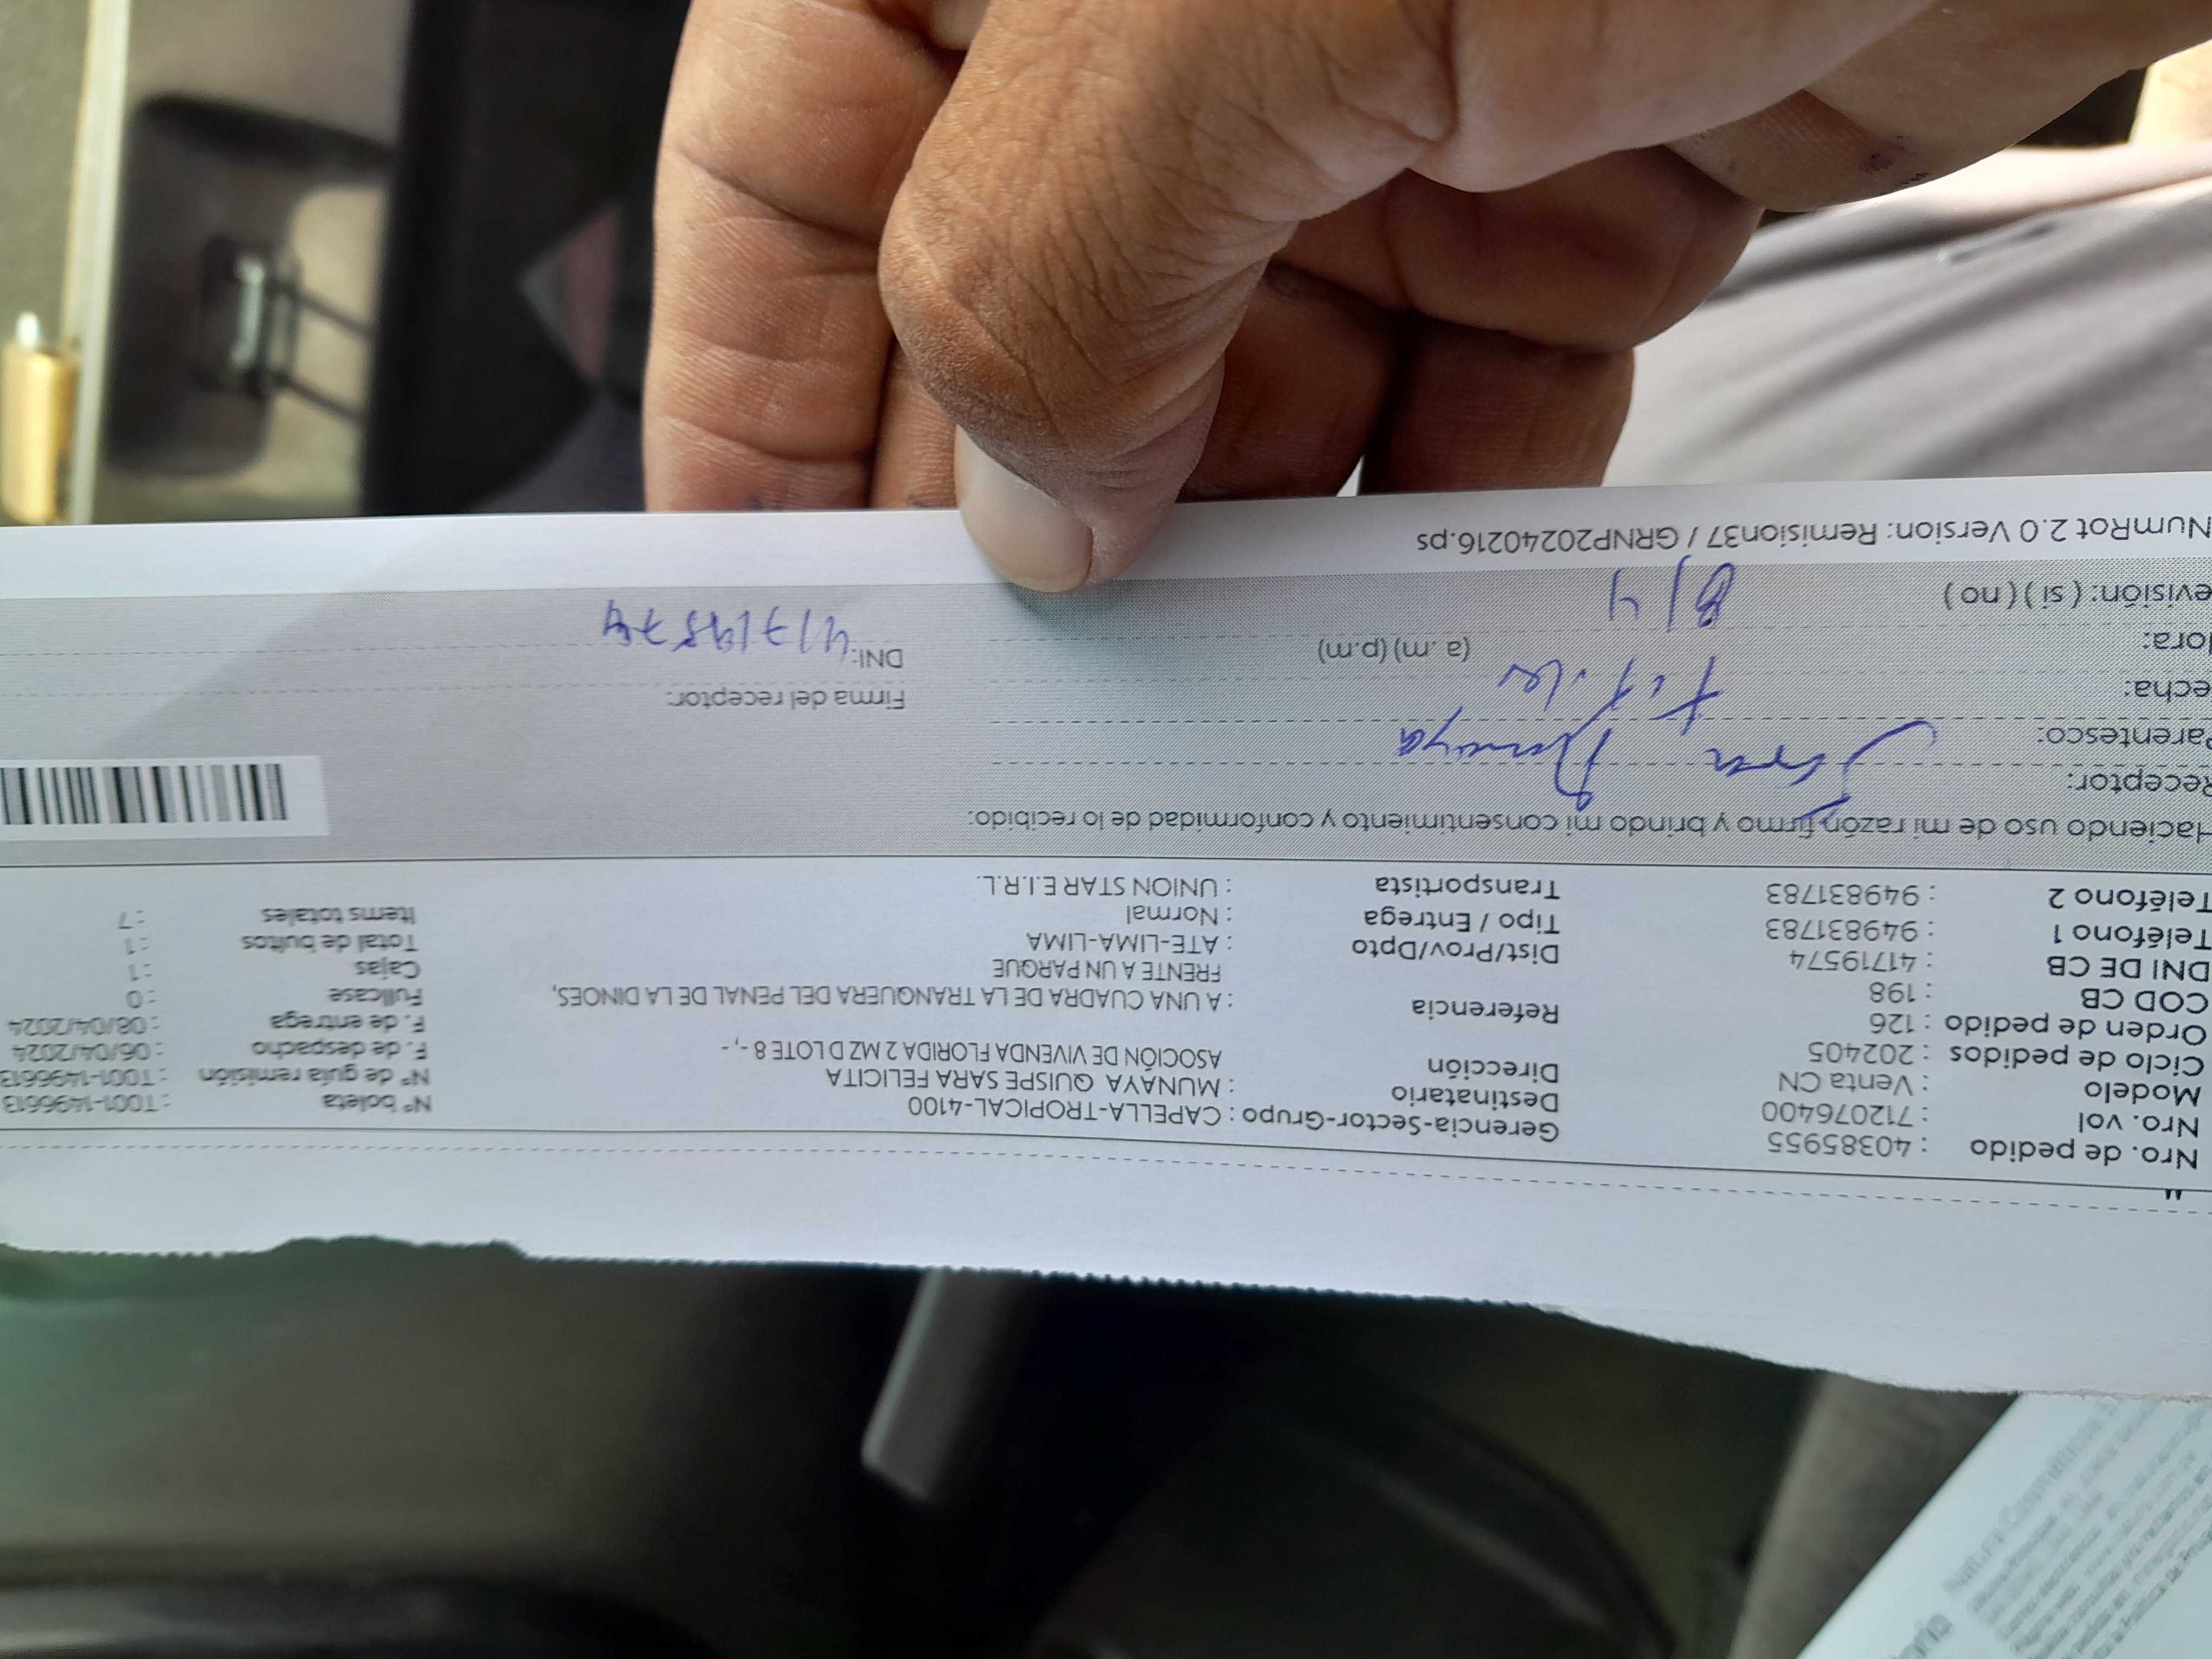 Nro. de pedido : 40385955
Nro. vol : 712076400
Modelo : Venta CN
Ciclo de pedidos : 202405
Orden de pedido : 126
COD CB : 198
DNI DE CB : 41719574
Teléfono 1 : 949831783
Teléfono 2 : 949831783
Gerencia-Sector-Grupo : CAPELLA-TROPICAL-4100
Destinatario : MUNAYA QUISPE SARA FELICITA
Dirección ASOCIÓN DE VIVENDA FLORIDA 2 MZ D LOTE 8 -, -
Referencia : A UNA CUADRA DE LA TRANQUERA DEL PENAL DE LA DINOES,
FRENTE A UN PARQUE
Dist/Prov/Dpto : ATE-LIMA-LIMA
Tipo / Entrega : Normal
Transportista : UNION STAR E.I.R.L.
Nº boleta : T001-1496613
Nº de guía remisión : T001-1496613
F. de despacho : 06/04/2024
F. de entrega : 08/04/2024
Fullcase : 0
Cajas : 1
Total de bultos : 1
Items totales : 7
Haciendo uso de mi razón firmo y brindo mi consentimiento y conformidad de lo recibido:
Receptor: Sara Munaya
Parentesco:
echa: 8/4
Hora: (a. m) (p.m)
evisión: ( si ) ( no )
Firma del receptor:
DNI: 41719574
NumRot 2.0 Version: Remision37 / GRNP20240216.ps
Natura Cosméticos